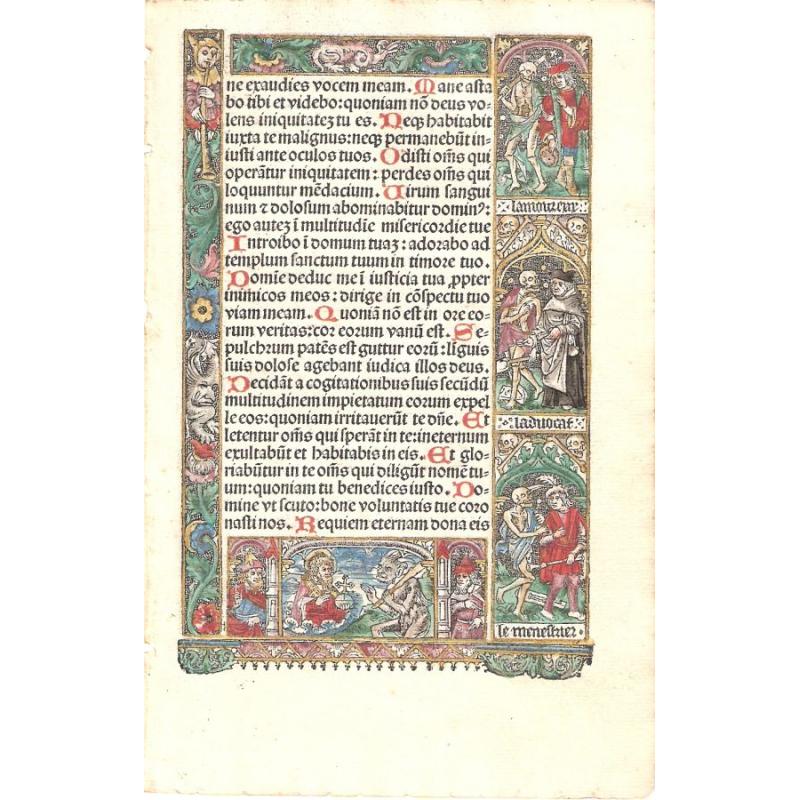 ne exaudies vocem meam. Mane asta
bo tibi et videbo: quoniam nō deus vo-
lens iniquitatez tu es. Neqꝫ habitabit
iuxta te malignus: neqꝫ permanebūt in-
iusti ante oculos tuos. Odisti oēs qui
operātur iniquitatem: perdes oēs qui
loquuntur mēdacium. Virum sangui
num ⁊ dolosum abominabitur dominꝰ:
ego autez ī multitudīe misericordie tue
Introibo ī domum tuaz: adorabo ad
templum sanctum tuum in timore tuo.
Domīe deduc me ī iusticia tua ꝓpter
inimicos meos: dirige in cōspectu tuo
viam meam. Quoniā nō est in ore eo-
rum veritas: cor eorum vanū est. Se-
pulchrum patēs est guttur eorū: līguis
suis dolose agebant iudica illos deus.
Decidāt a cogitationibus suis secūdū
multitudinem impietatum eorum expel
le eos: quoniam irritauerūt te dn̄e. Et
letentur oēs qui sperāt in te: ineternum
exultabūt et habitabis in eis. Et glo-
riabūtur in te oēs qui diligūt nomē tu-
um: quoniam tu benedices iusto. Do-
mine vt scuto: bone voluntatis tue coro
nasti nos. Requiem eternam dona eis
lamoureux
ladvocat
le menestrier.